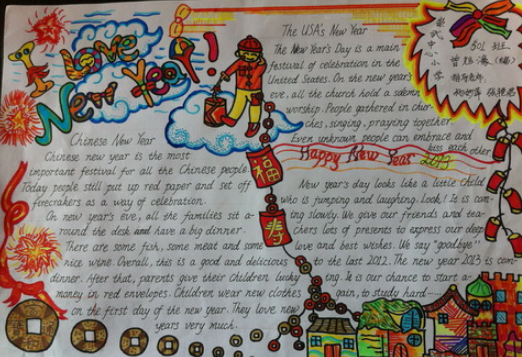 I Love
New Year!
The USA's New Year
The New Year's Day is a main
festival of celebration in the
United States. On the new year's
eve, all the church hold a solemn
worship. People gathered in chur-
ches, singing, praying together.
Even unknown people can embrace and
kiss each other
Happy New Year 2013
New year's day looks like a little child
who is jumping and laughing. Look! It is com-
ing slowly. We give our friends and tea-
chers lots of presents to express our deep
love and best wishes. We say "goodbye"
to the last 2012. The new year 2013 is com-
ing. It is our chance to start a-
gain, to study hard
Chinese New Year
Chinese new year is the most
important festival for all the Chinese people.
Today people still put up red paper and set off
firecrakers as a way of celebration.
On new year's eve, all the families sit a-
round the desk and have a big dinner.
There are some fish, some meat and some
nice wine. Overall, this is a good and delicious
dinner. After that, parents give their children lucky
money in red envelopes. Children wear new clothes
on the first day of the new year. They love new
years very much.
福
寿
中心小学
801 班